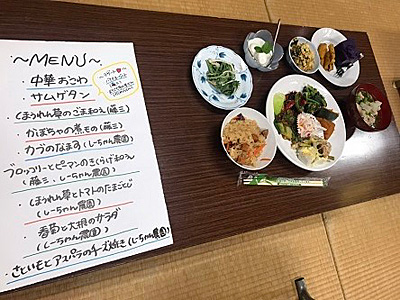 ~MENU~
・中華おこわ
・サムゲタン
・くほうれん草のごま和え(藤三)
・かぼちゃの煮もの(藤三)
・カブのなます(しーちゃん農園)
・ブロッコリーとピーマンのきくらげ和え
(藤三、しーちゃん農園)
・ほうれん草とトマトのたまごとじ
(しーちゃん農園)
・春菊と大根のサラダ
(しーちゃん農園)
・さといもとアスパラのチーズ焼き(しーちゃん農園)